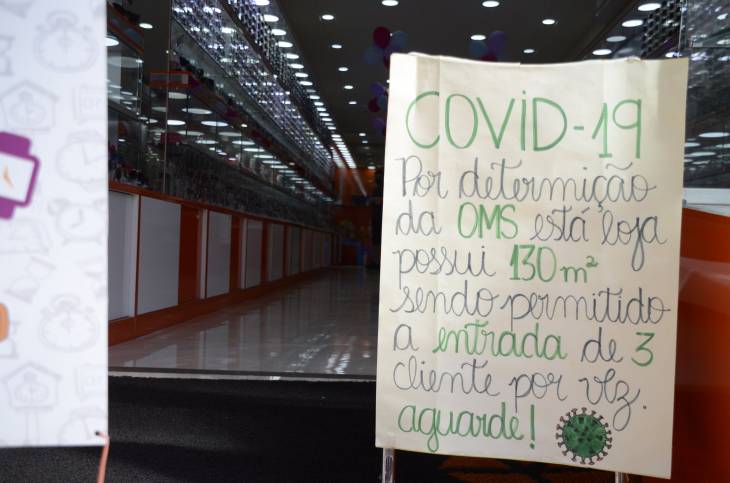 COVID-19
Por determição
da OMS está loja
possui 130 m²
sendo permitido
a entrada de 3
cliente por vez.
aguarde!